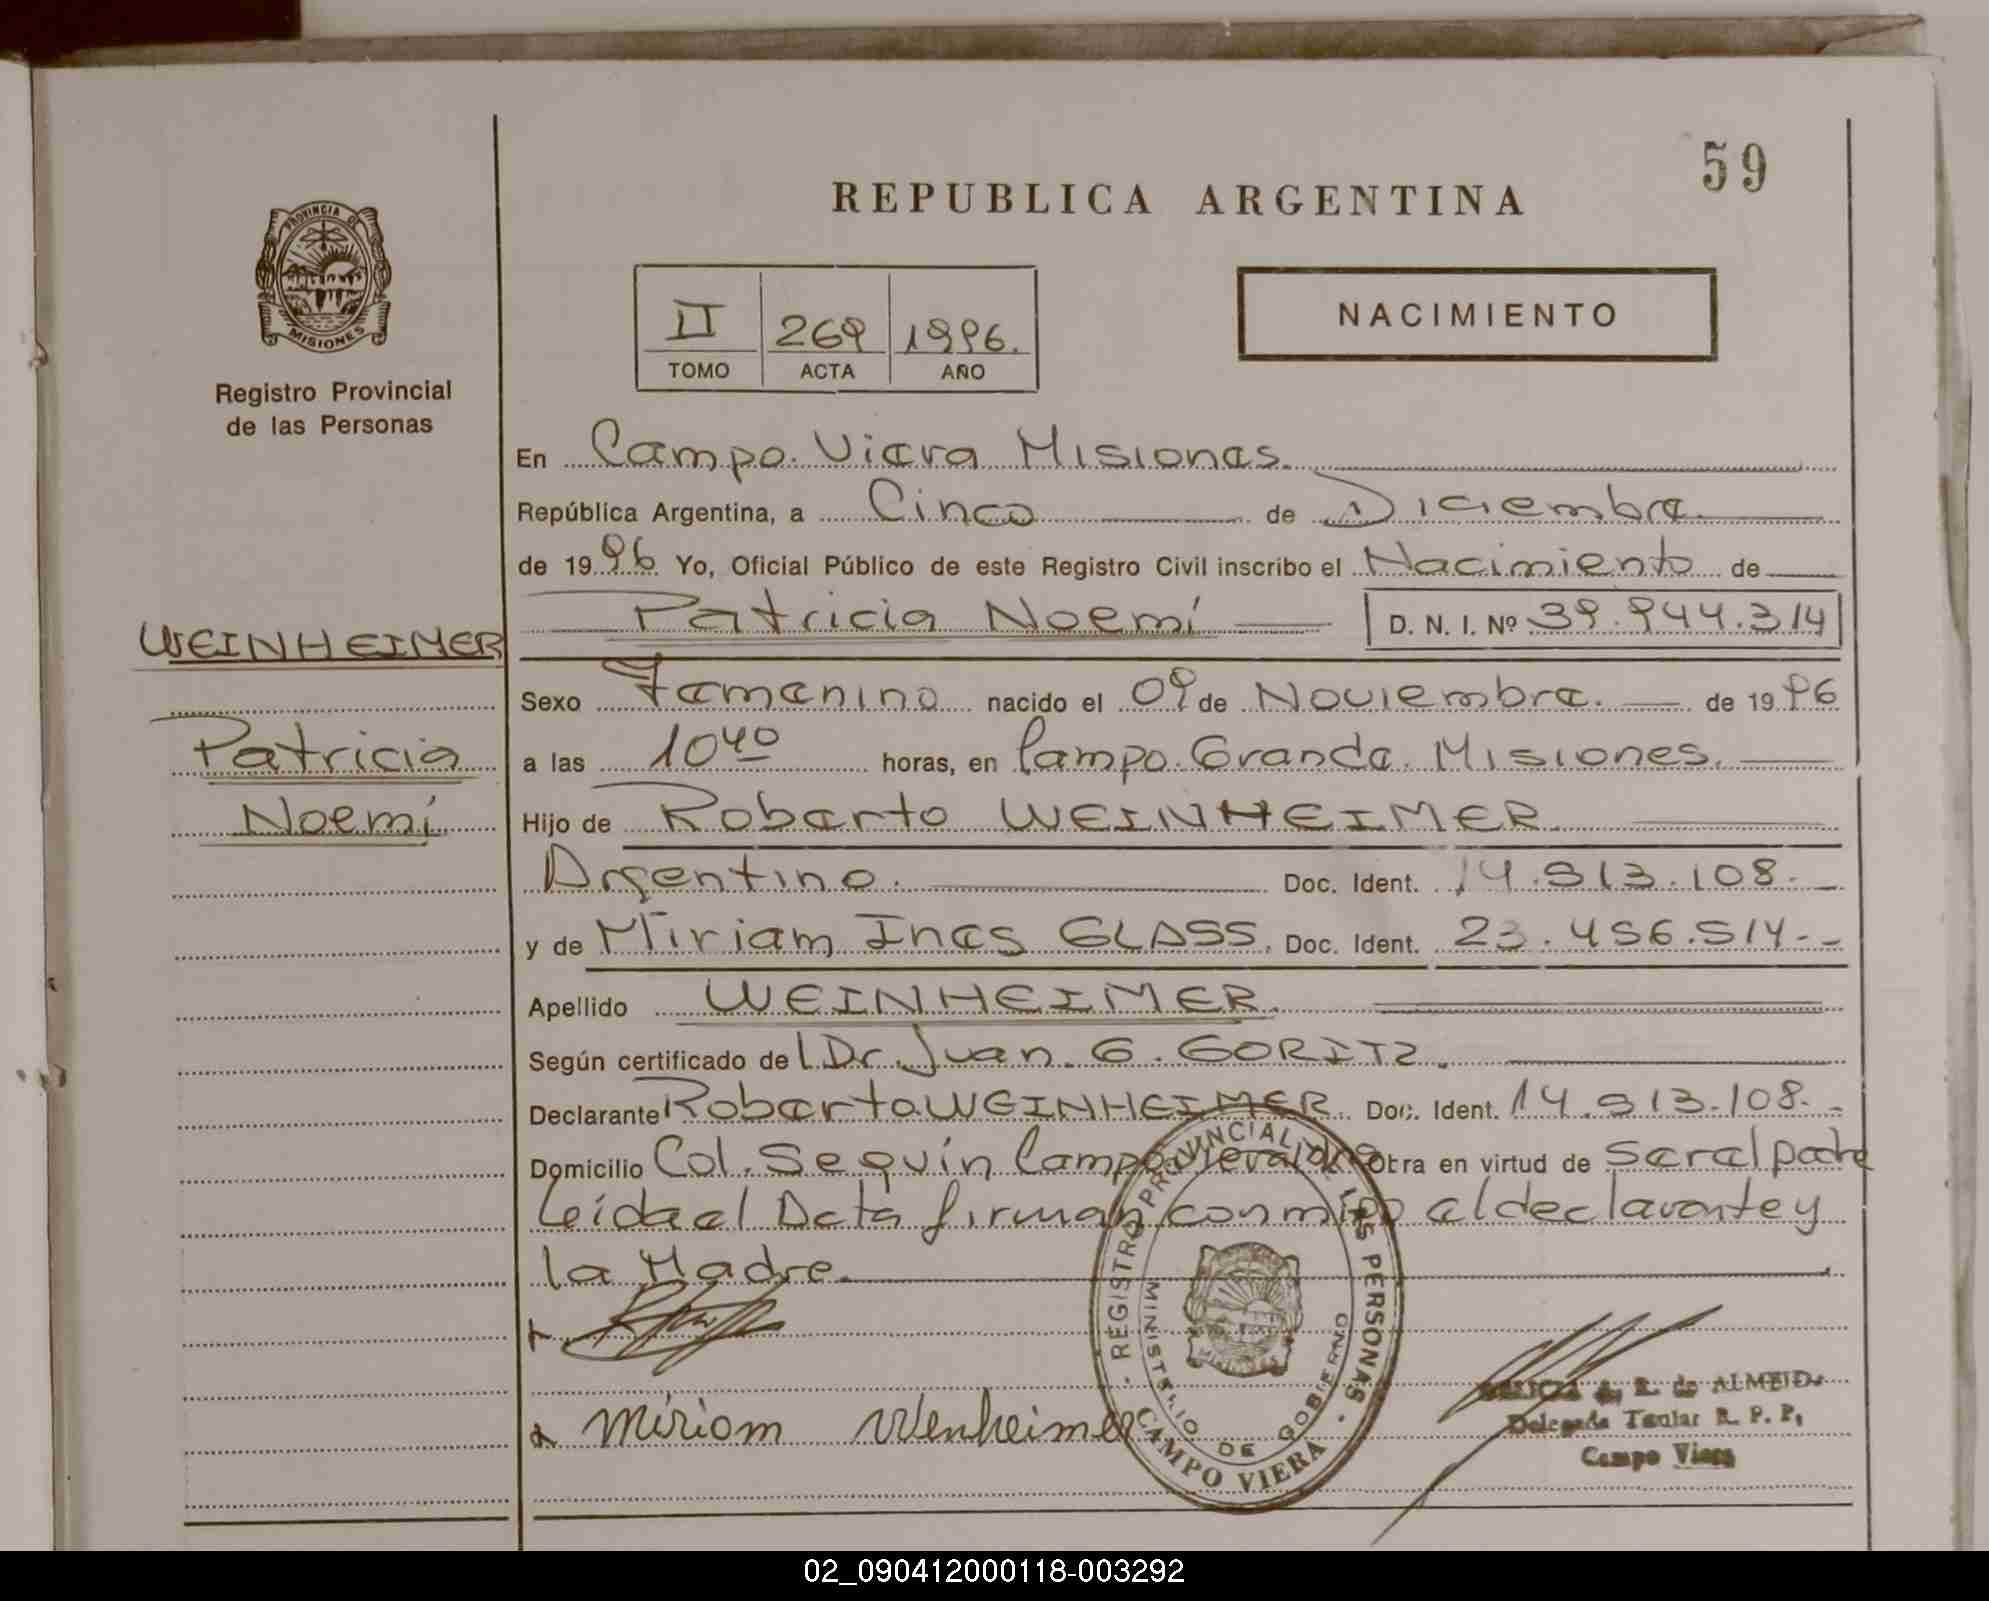 59
REPUBLICA ARGENTINA
PROVINCIA DE
MISIONES
Registro Provincial
de las Personas
II 269 1996.
TOMO ACTA AÑO
NACIMIENTO
En Campo Viera Misiones.
República Argentina, a Cinco de Diciembre
de 1996 Yo, Oficial Público de este Registro Civil inscribo el Nacimiento de
Patricia Noemí D. N. I. Nº 39.944.314
WEINHEIMER
Patricia
Noemí
Sexo Femenino nacido el 09 de Noviembre. de 1996
a las 10 40 horas, en Campo Grande Misiones.
Hijo de Roberto WEINHEIMER
Argentino. Doc. Ident. 14.913.108.
y de Miriam Ines GLASS. Doc. Ident. 23.456.514
Apellido WEINHEIMER.
Según certificado de l Dr. Juan G. GORITZ.
Declarante Roberto WEINHEIMER. Doc. Ident. 14.913.108.
Domicilio Col. Seguín Campo Viera Obra en virtud de ser el padre
leída el Acta firman conmigo el declarante y
la Madre.
Miriam Weinheimer
REGISTRO PROVINCIAL DE LAS PERSONAS
MINISTERIO DE GOBIERNO
MISIONES
CAMPO VIERA
R. de ALMEIDA
Delegada Titular R. P. P.
Campo Viera
02_090412000118-003292